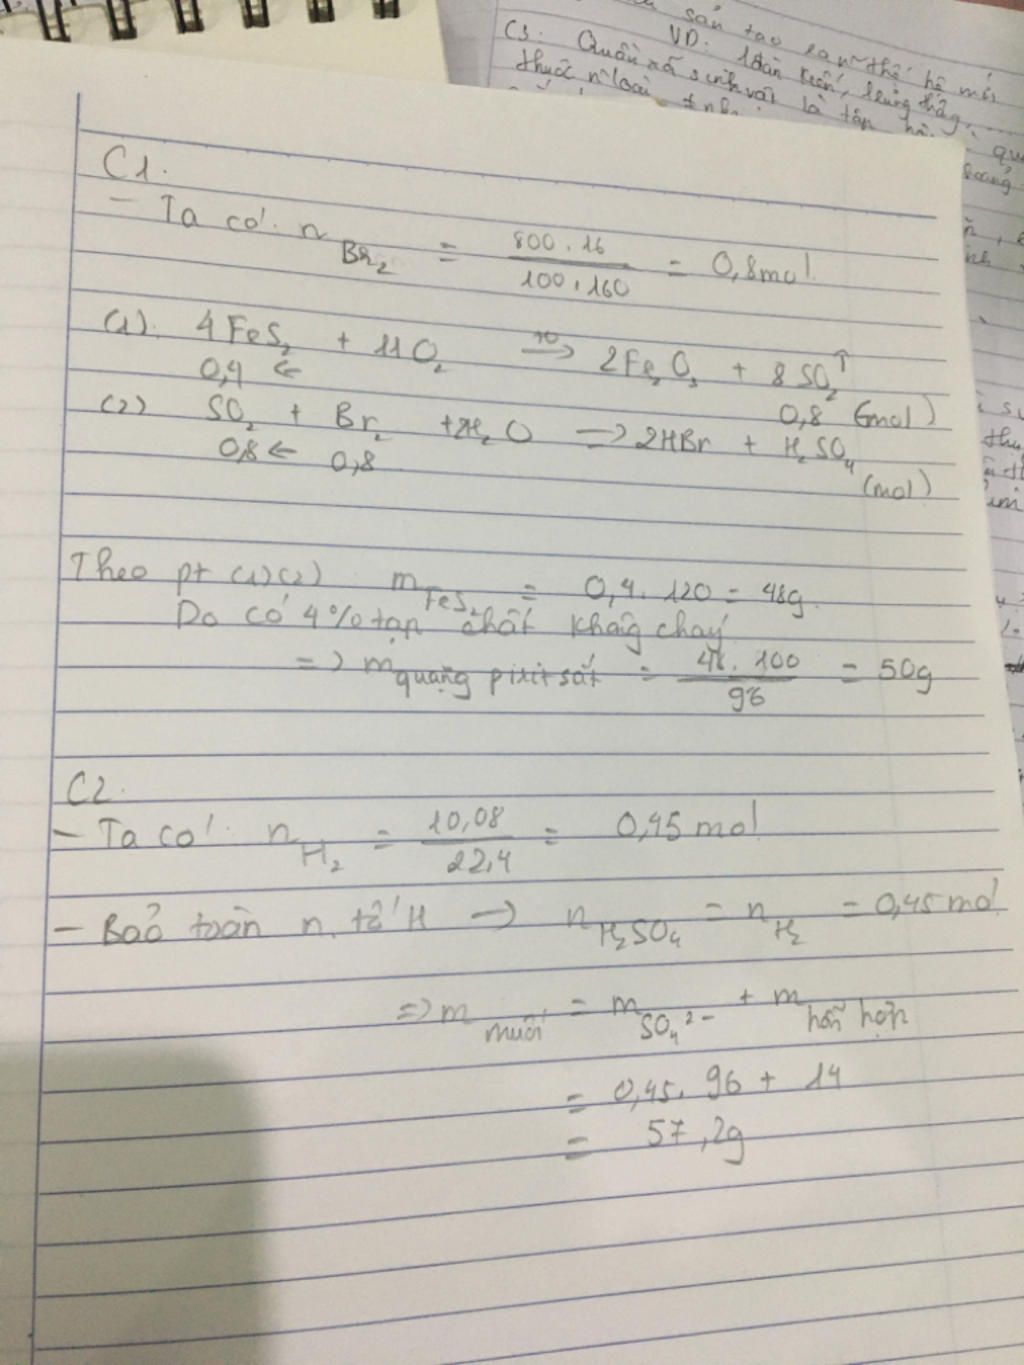 sản tạo ra n thế hệ mới
VD: đàn kiến, rừng thông,
C3. Quần xã sinh vật là tập
thuộc n loài
C1.
- Ta có: n Br₂ = 800.16 / 100.160 = 0,8mol.
(1). 4FeS₂ + 11O₂ t⁰→ 2Fe₂O₃ + 8SO₂↑
0,4 ← 0,8 (mol)
(2) SO₂ + Br₂ +2H₂O → 2HBr + H₂SO₄
0,8 ← 0,8 (mol)
Theo pt (1)(2) m FeS₂ = 0,4.120 = 48g.
Do có 4% tạp chất không cháy
=> m quặng pirit sắt = 48.100 / 96 = 50g
C2.
- Ta có: n H₂ = 10,08 / 22,4 = 0,45 mol
- Bảo toàn n. tố H → n H₂SO₄ = n H₂ = 0,45 mol
=> m muối = m SO₄²⁻ + m hỗn hợp
= 0,45.96 + 14
= 57,2g